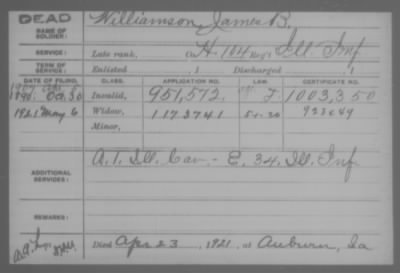 DEAD
NAME OF SOLDIER: Williamson, James B.
SERVICE: Late rank, Co. H. 104 Reg't Ill Inf
TERM OF SERVICE: Enlisted , 1 Discharged , 1
DATE OF FILING. CLASS. APPLICATION NO. LAW. CERTIFICATE NO.
1890 Oct 30 Invalid, 951,572 J. 1003,350
1921 May 6 Widow, 1173741
Minor,
ADDITIONAL SERVICES: A. 1. Ill. Cav. - E. 34. Ill. Inf.
REMARKS:
Died Apr 23 1921, at Auburn, Ia